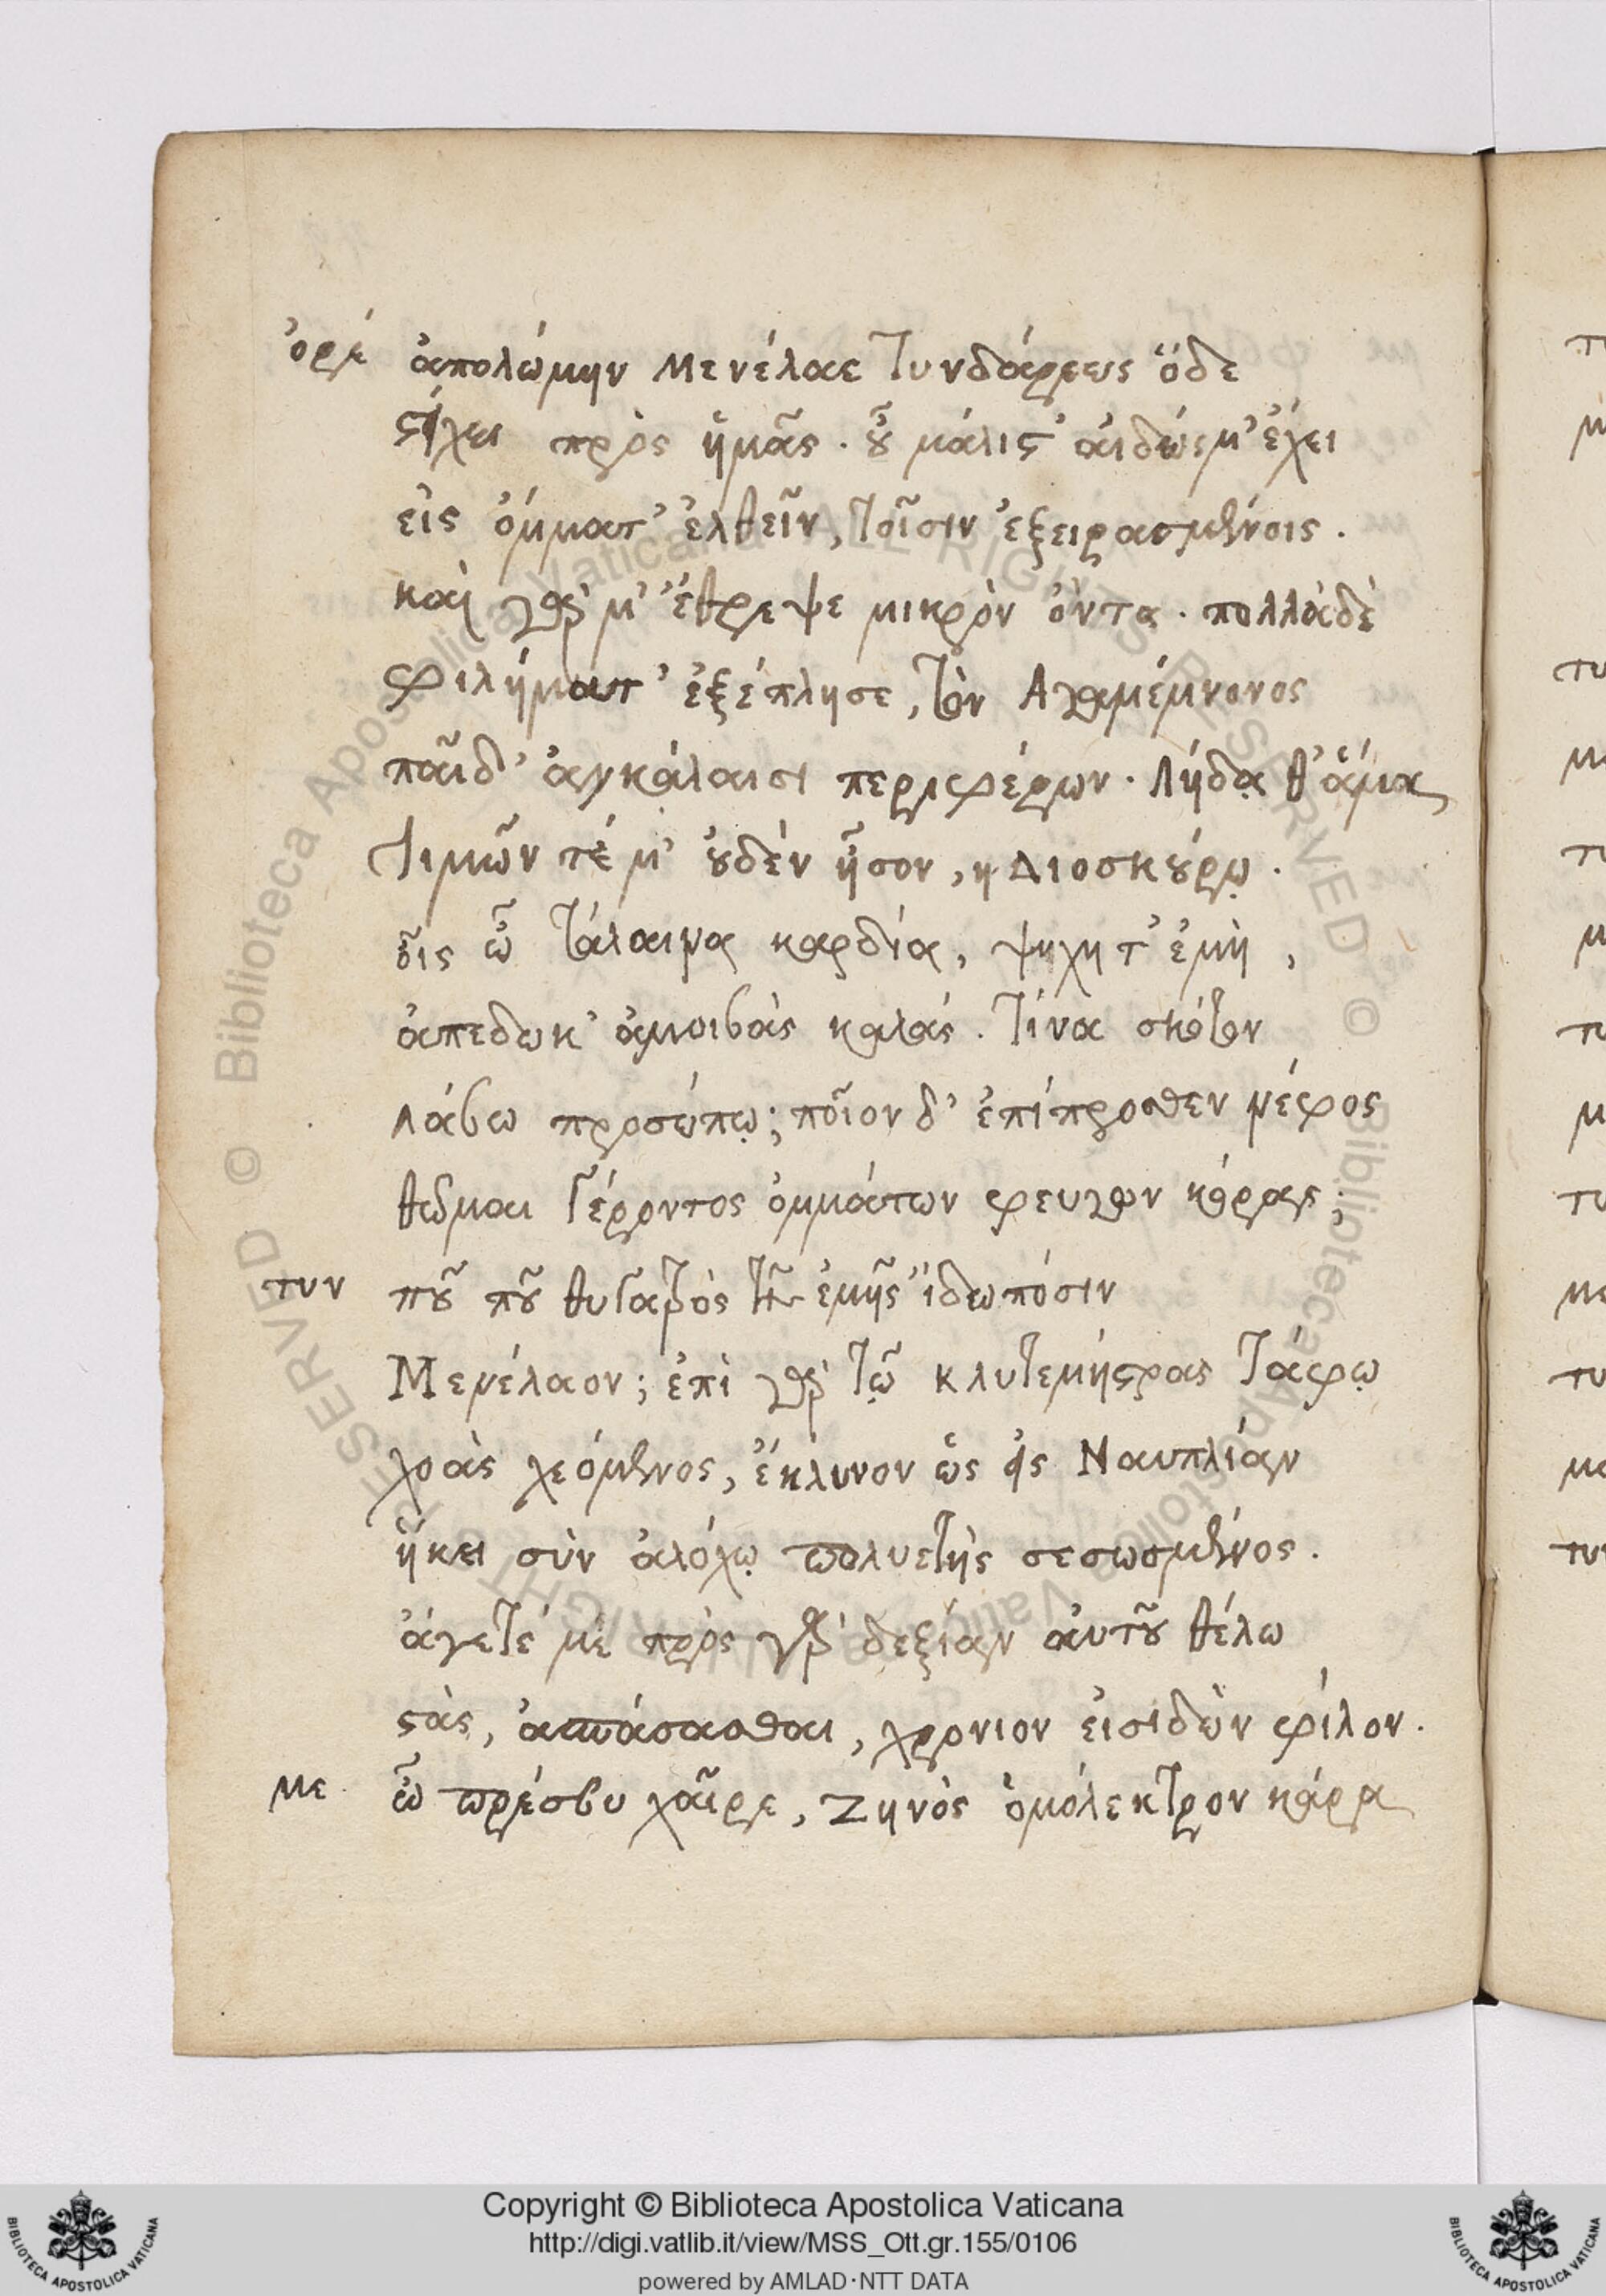 ὀρέ ἀπολώμην Μενέλαε Τυνδάρεως ὅδε
στείχει πρὸς ἡμᾶς. οὗ μάλιστ' ἀιδώς μ' ἔχει
εἰς ὄμματ' ἐλθεῖν, τοῖσιν ἐξειργασμένοις.
καὶ γάρ μ' ἔθρεψε μικρὸν ὄντα. πολλὰ δὲ
φιλήματ' ἐξέπλησε, τὸν Ἀγαμέμνονος
παῖδ' ἀγκάλαισι περιφέρων. Λήδα θ' ἅμα
τιμῶν τέ μ' οὐδὲν ἧσον, η Διοσκούρω.
οἷς ὦ τάλαινα καρδία, ψυχη τ' ἐμὴ,
ἀπεδωκ' ἀμοιβὰς καλάς. τίνα σκότον
λάβω προσώπω; ποῖον δ' ἐπίπροσθεν νέφος
θῶμαι γέροντος ὀμμάτων φευγων κόρας;
τυν ποῦ ποῦ θυγατρὸς τῆς ἐμῆς ἴδω πόσιν
Μενέλαον; ἐπὶ γὰρ τῷ κλυτεμνήστρας τάφῳ
χοὰς χεόμενος, ἔκλυον ὡς εἰς Ναυπλίαν
ἥκει σὺν ἀλόχῳ πολυετὴς σεσωσμένος.
ἄγετέ μὲ πρὸς γὰρ δεξίαν ἀυτοῦ θέλω
στὰς, ἀσπάσασθαι, χρονιον εἰσιδὼν φίλον.
με ὦ πρέσβυ χαῖρε, Ζηνὸς ὁμόλεκτρον κάρα
© Biblioteca Apostolica Vaticana ALL RIGHTS RESERVED
Copyright © Biblioteca Apostolica Vaticana
http://digi.vatlib.it/view/MSS_Ott.gr.155/0106
powered by AMLAD·NTT DATA
BIBLIOTECA APOSTOLICA VATICANA
BIBLIOTECA APOSTOLICA VATICANA